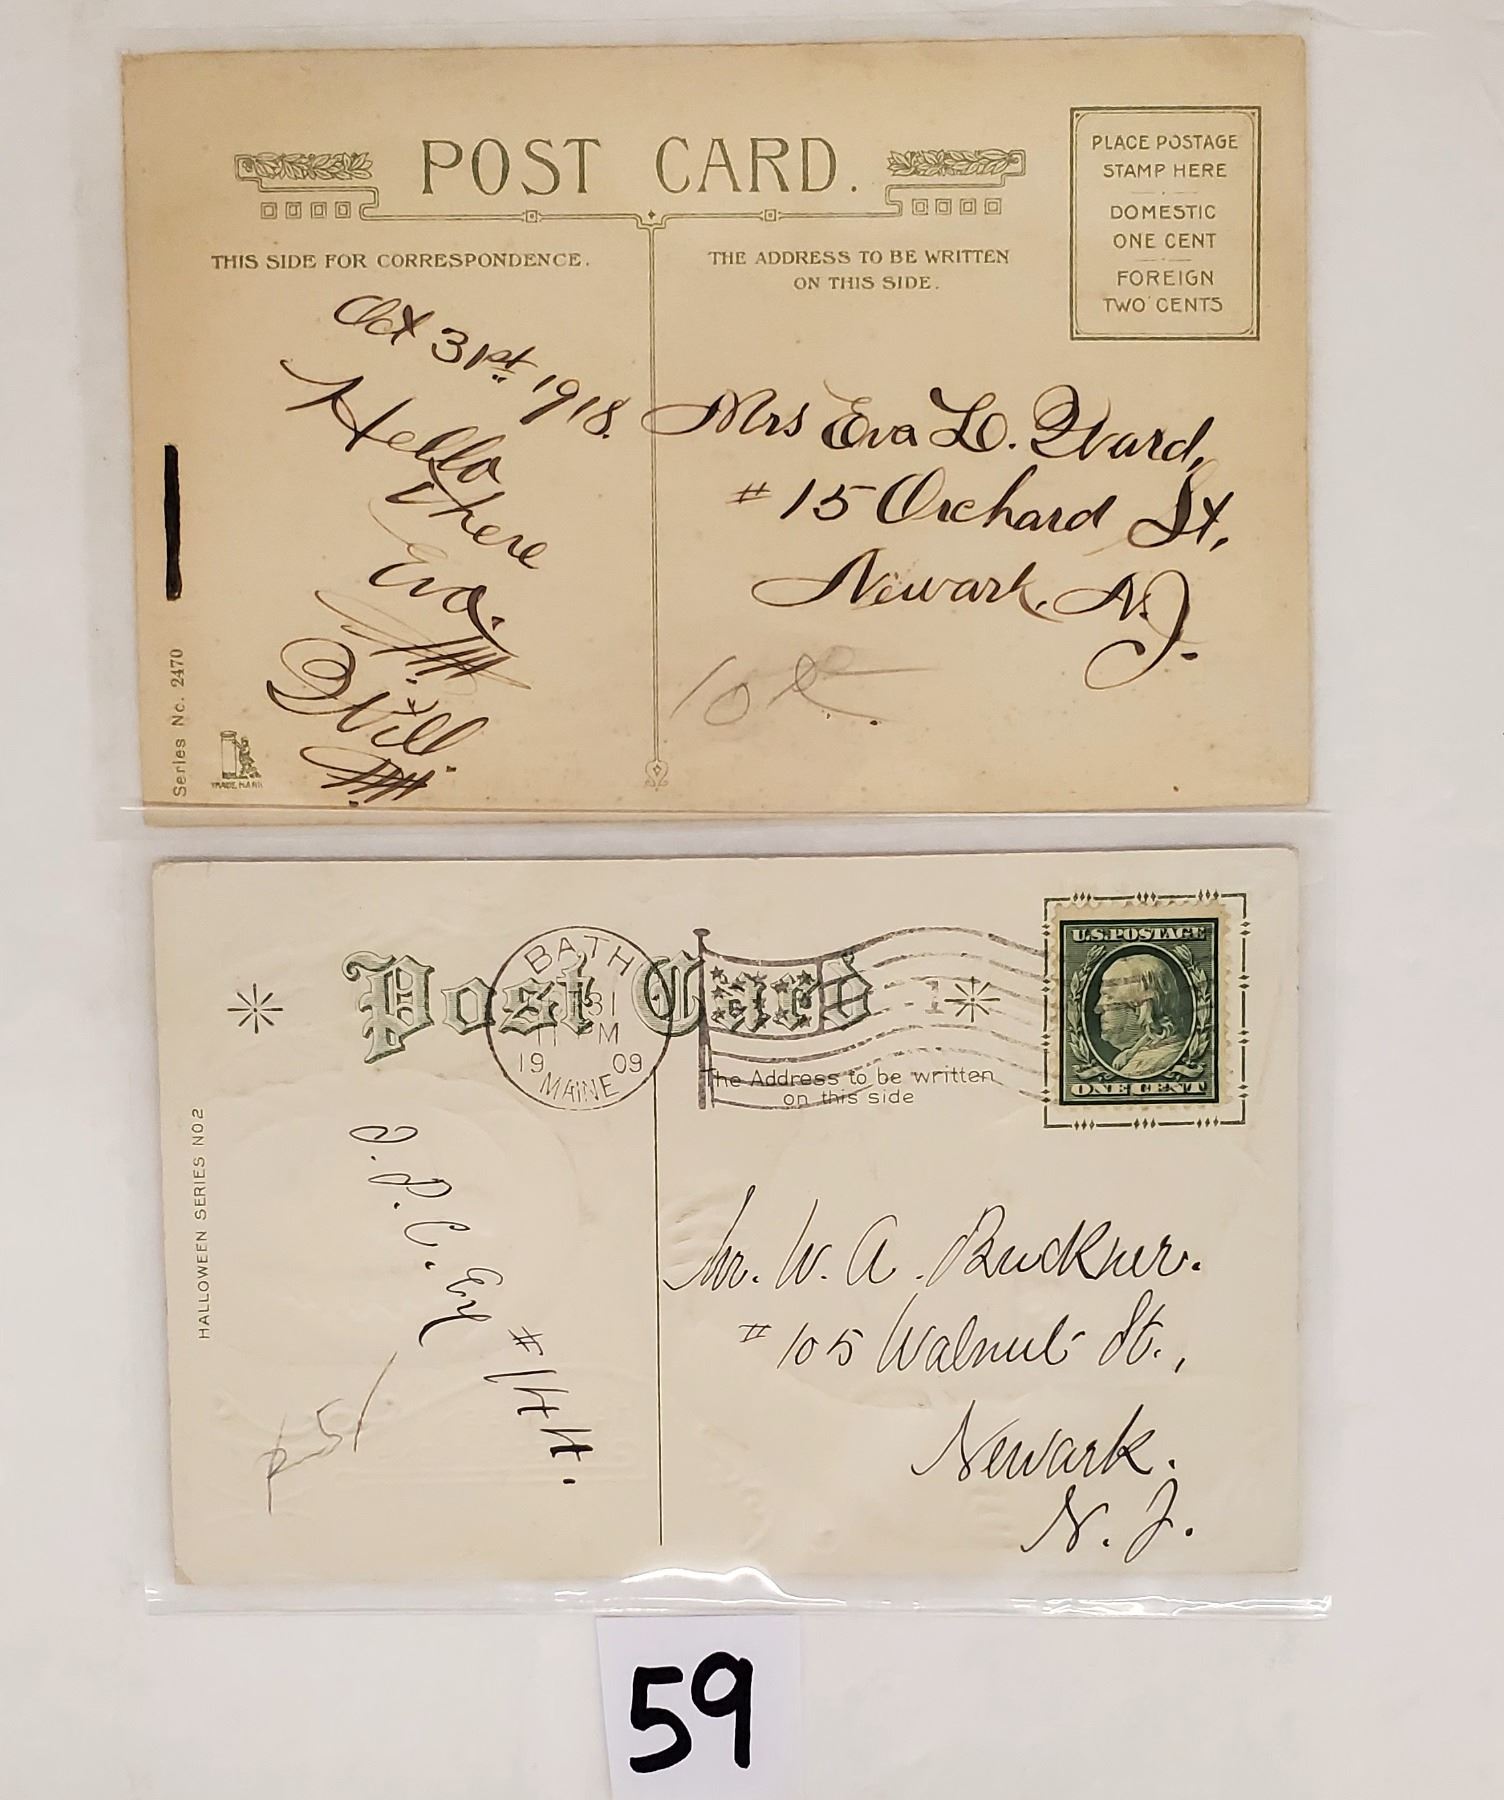 POST CARD.
PLACE POSTAGE
STAMP HERE
DOMESTIC
ONE CENT
FOREIGN
TWO CENTS
THIS SIDE FOR CORRESPONDENCE.
THE ADDRESS TO BE WRITTEN
ON THIS SIDE.
Oct 31st 1918.
Hello
there
Eva.
Will.
Mrs Eva L. Ward,
# 15 Orchard St,
Newark, N.J.
10
Series No. 2470
TRADE MARK
Post Card
BATH
31
11 PM
19 09
MAINE
U.S. POSTAGE
ONE CENT
The Address to be written
on this side
HALLOWEEN SERIES NO.2
#144.
Mr. W. A. Buckner.
# 105 Walnut St.,
Newark.
N. J.
59